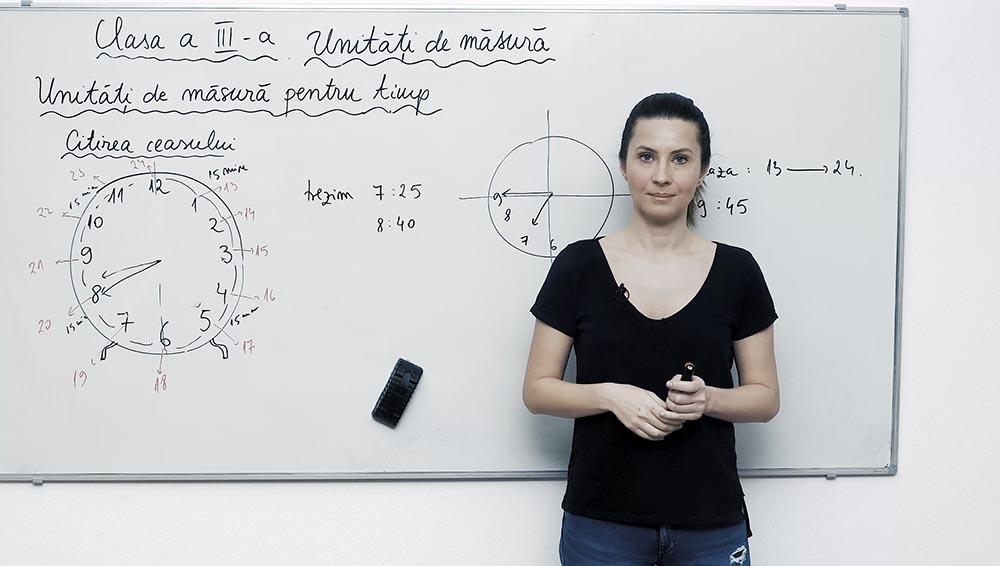 Clasa a III-a. Unități de măsură
Unități de măsură pentru timp
Citirea ceasului
24
23
12
15 min
13
11
1
15 min
22
10
2
14
21
9
3
15
20
8
4
16
15 min
7
5
15 min
6
17
19
18
trezim 7:25
8:40
9
8
7
6
aza : 13 → 24.
9:45